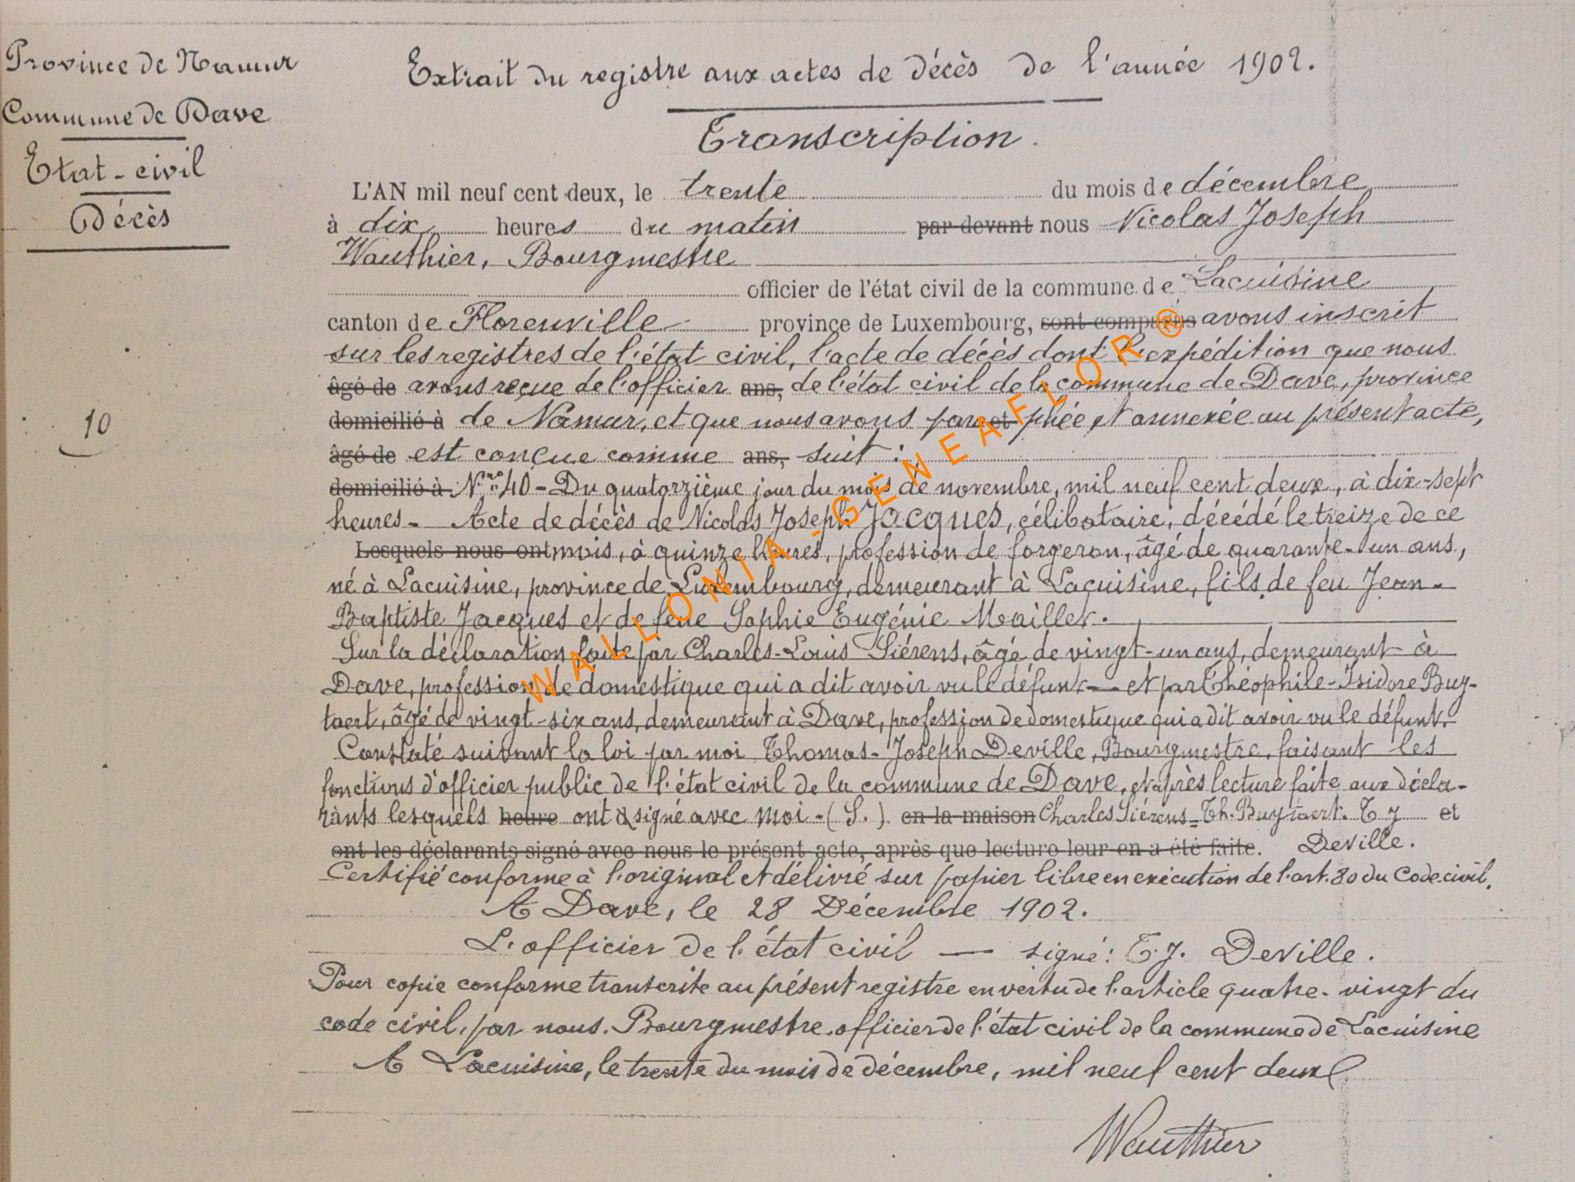 Province de Namur
Commune de Dave
Etat-civil
Décès
10
Extrait du registre aux actes de décès de l'année 1902.
Transcription.
L'AN mil neuf cent deux, le trente du mois de décembre
à dix heures du matin par devant nous Nicolas Joseph
Wauthier, Bourgmestre
officier de l'état civil de la commune de Lacuisine
canton de Florenville province de Luxembourg, sont comparus avons inscrit
sur les registres de l'état civil, l'acte de décès dont l'expédition que nous
âgé de avons reçue de l'officier ans, de l'état civil de la commune de Dave, province
domicilié à de Namur, et que nous avons par et phée et annexée au présent acte,
âgé de est conçue comme ans, suit :
domicilié à N.ro 40 - Du quatorzième jour du mois de novembre, mil neuf cent deux, à dix-sept
heures - Acte de décès de Nicolas Joseph Jacques, célibataire, décédé le treize de ce
Lesquels nous ont mois, à quinze heures, profession de forgeron, âgé de quarante-un ans,
né à Lacuisine, province de Luxembourg, demeurant à Lacuisine, fils de feu Jean-
Baptiste Jacques et de feue Sophie Eugénie Maillet.
Sur la déclaration faite par Charles-Louis Siérens, âgé de vingt-un ans, demeurant à
Dave, profession de domestique qui a dit avoir vu le défunt — et par Théophile-Isidore Buy-
taert, âgé de vingt-six ans, demeurant à Dave, profession de domestique qui a dit avoir vu le défunt.
Constaté suivant la loi par moi Thomas-Joseph Deville, Bourgmestre, faisant les
fonctions d'officier public de l'état civil de la commune de Dave, et après lecture faite aux décla-
rants lesquels heure ont signé avec moi - (S.) en la maison Charles Siérens - Th. Buytaert. T J et
ont les déclarants signé avec nous le présent acte, après que lecture leur en a été faite. Deville.
Certifié conforme à l'original et délivré sur papier libre en exécution de l'art. 80 du Code civil.
A Dave, le 28 Décembre 1902.
L'officier de l'état civil — signé: T.J. Deville.
Pour copie conforme transcrite au présent registre en vertu de l'article quatre-vingt du
code civil, par nous, Bourgmestre, officier de l'état civil de la commune de Lacuisine
A Lacuisine, le trente du mois de décembre, mil neuf cent deux
Wauthier
WALLONIA-GENEAFLOR®